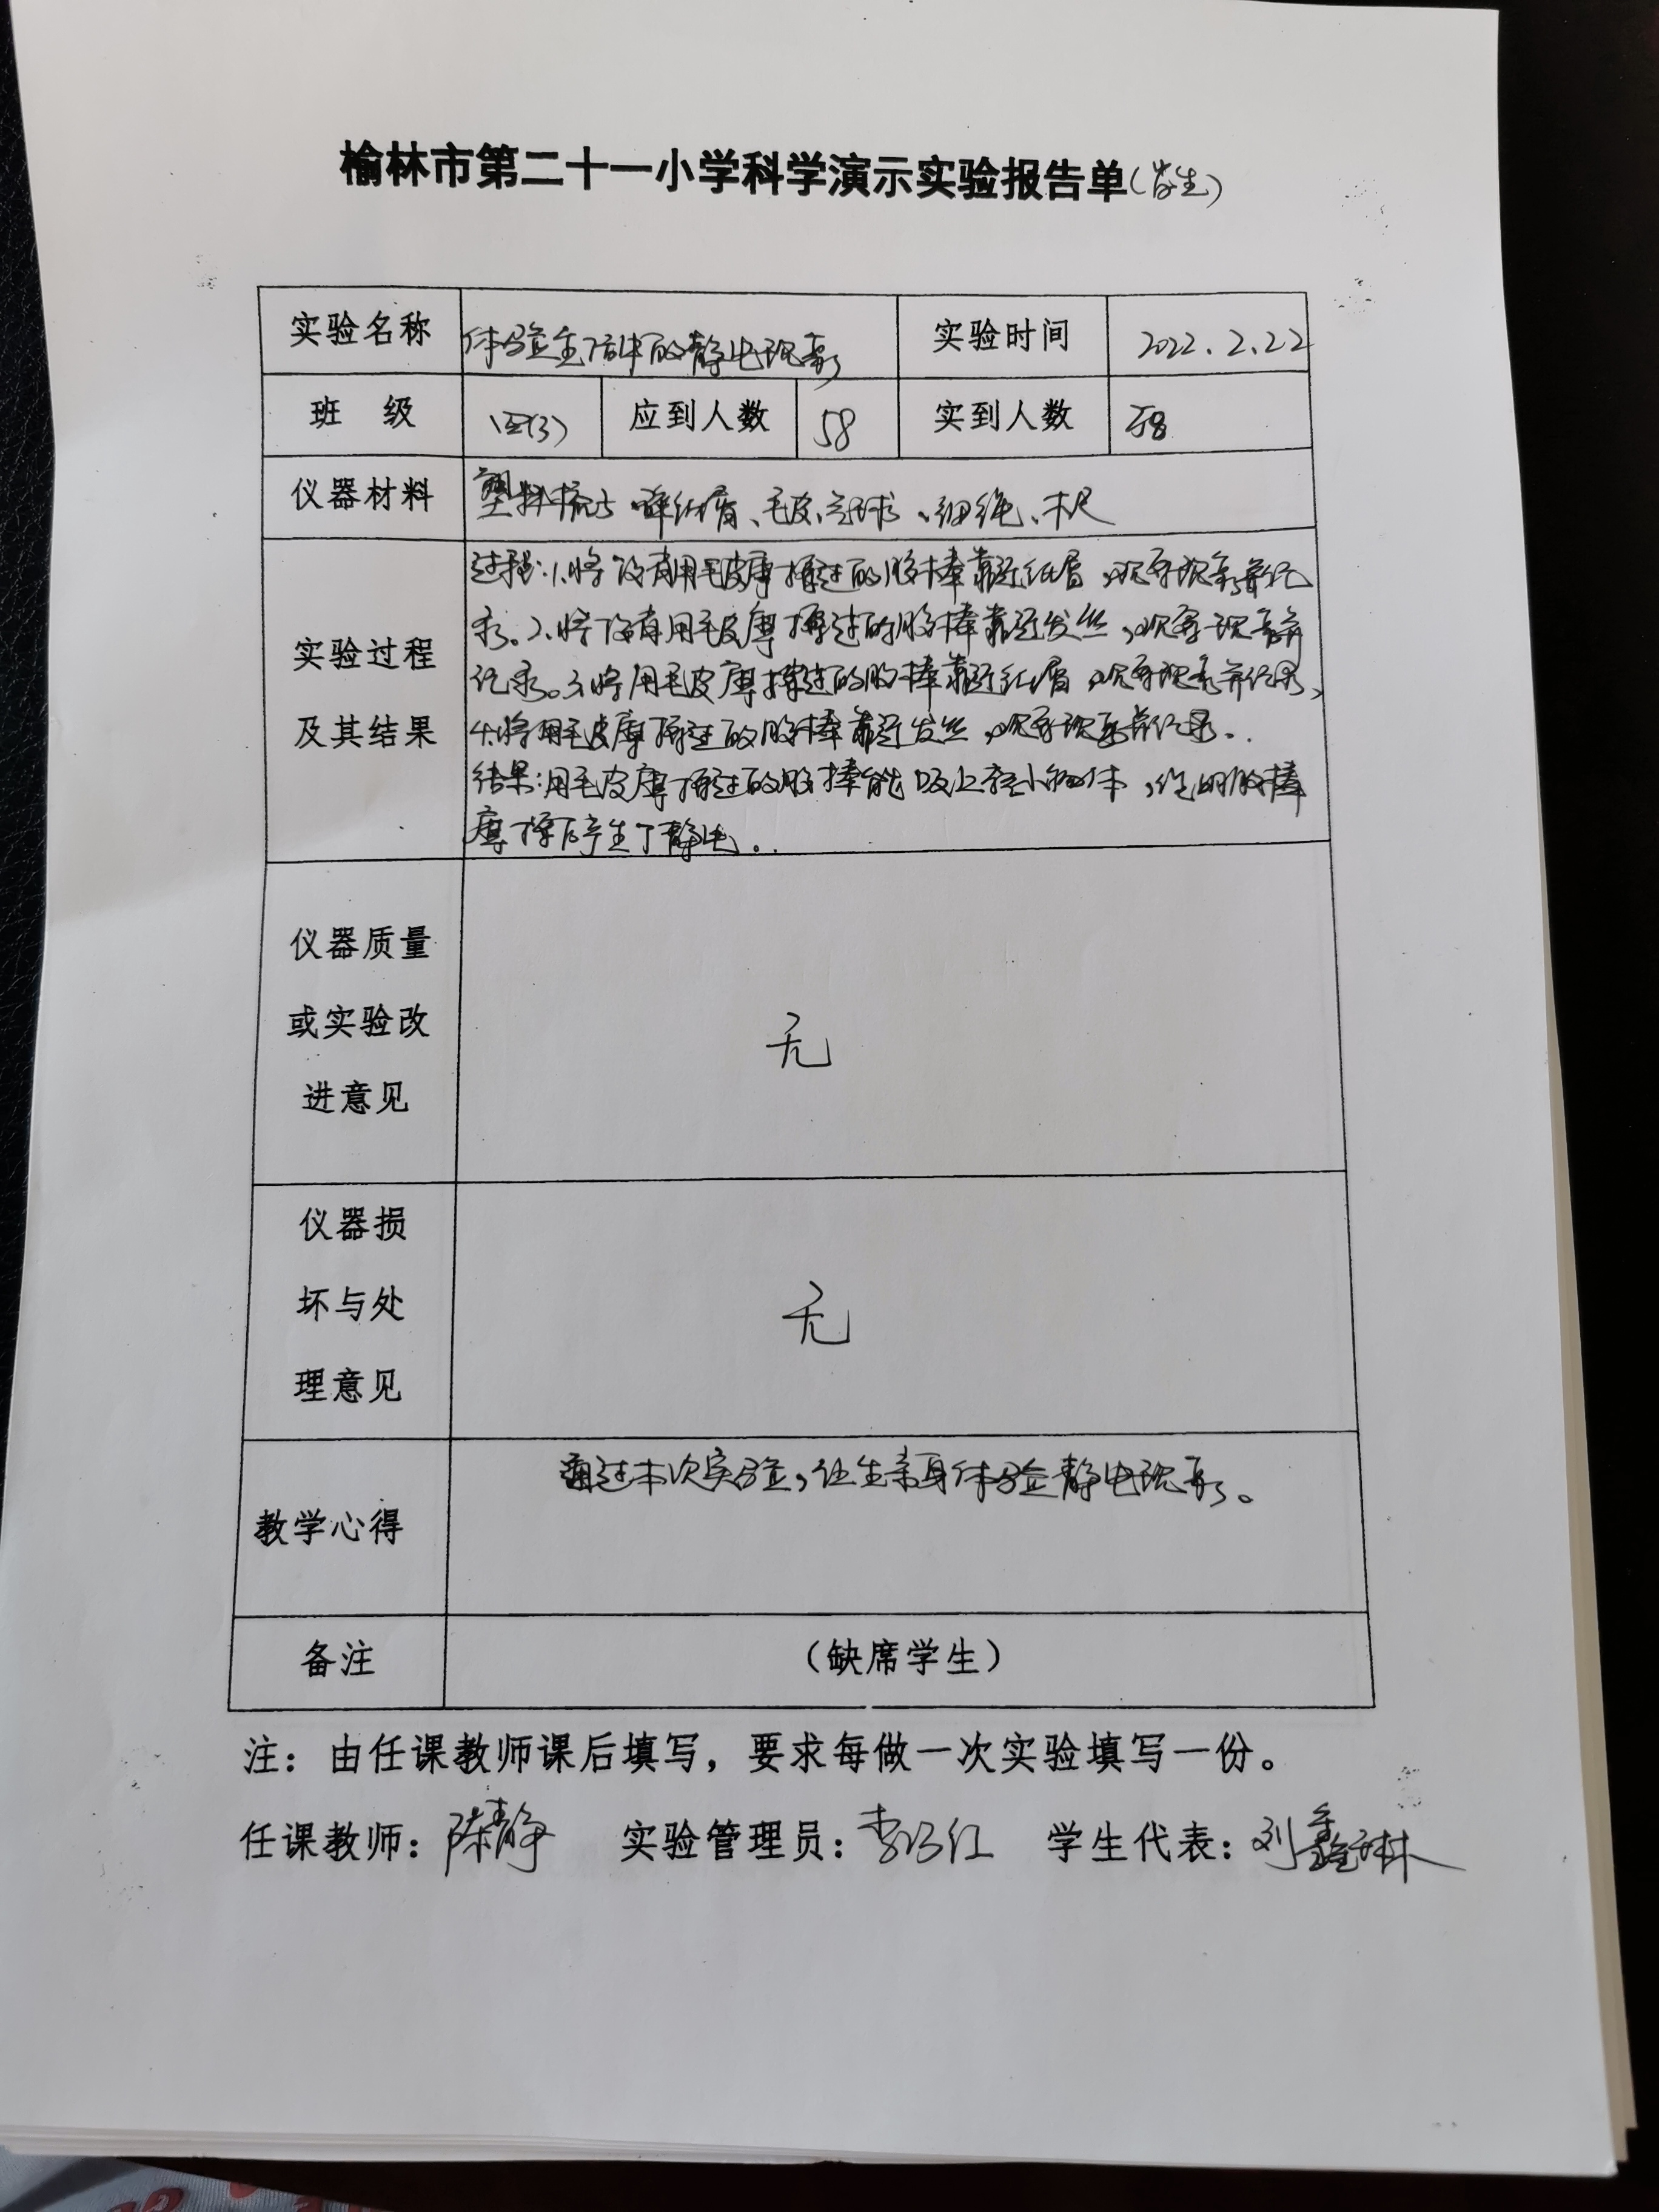 榆林市第二十一小学科学演示实验报告单(学生)
实验名称 体验生活中的静电现象 实验时间 2022.2.22
班 级 五(3) 应到人数 58 实到人数 58
仪器材料 塑料梳子 碎纸屑、毛皮、气球、细绳、木尺
实验过程及其结果
过程:1.将没有用毛皮摩擦过的胶棒靠近纸屑,观察现象并记
录。2.将没有用毛皮摩擦过的胶棒靠近发丝,观察现象并
记录。3.将用毛皮摩擦过的胶棒靠近纸屑,观察现象并记录,
4.将用毛皮摩擦过的胶棒靠近发丝,观察现象并记录.
结果:用毛皮摩擦过的胶棒能吸上轻小物体,说明胶棒
摩擦后产生了静电.
仪器质量
或实验改
进意见
无
仪器损
坏与处
理意见
无
教学心得 通过本次实验,让生亲身体验静电现象。
备注 (缺席学生)
注:由任课教师课后填写,要求每做一次实验填写一份。
任课教师:陈静 实验管理员:李 红 学生代表:刘鑫琳